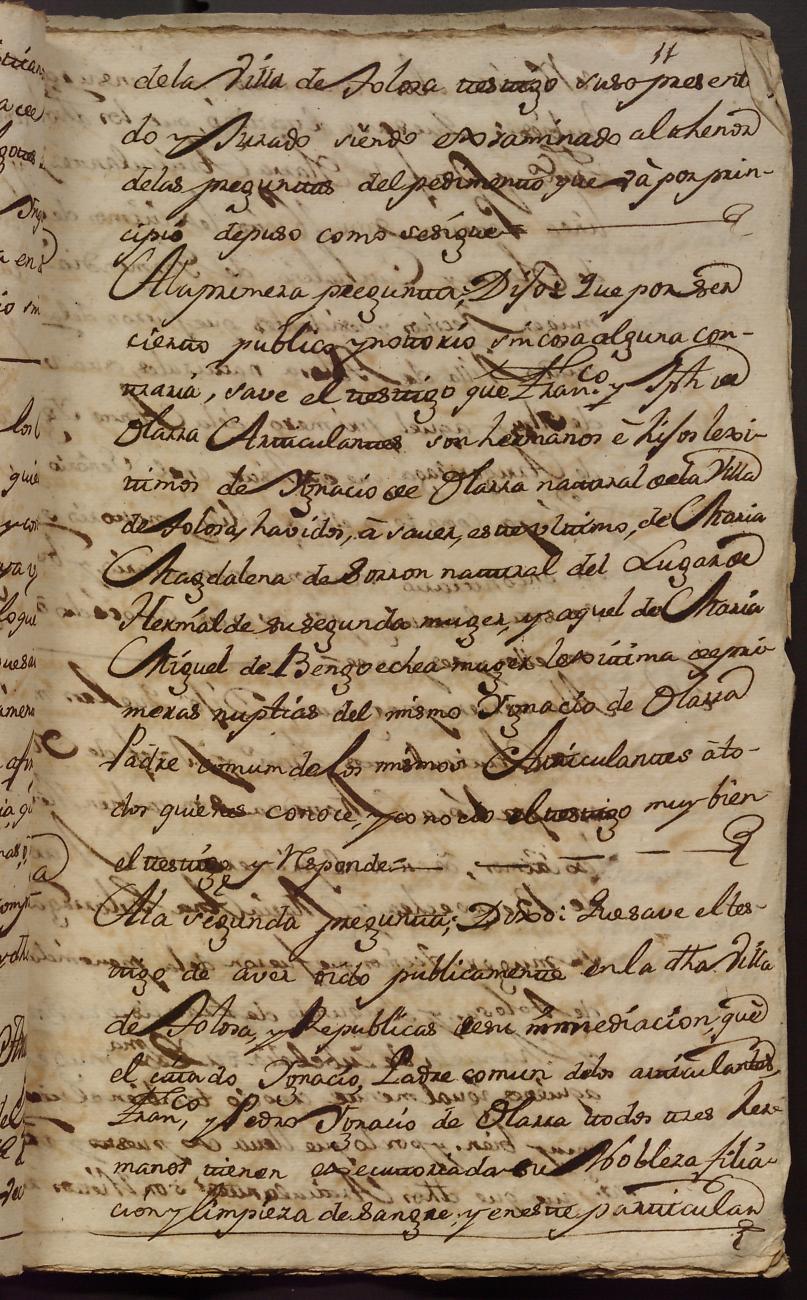 11
dela Villa de Tolosa testigo suso presenta
do y Jurado siendo exsaminado al thenor
delas preguntas del pedimento que và por prin-
cipio depuso como sesigue
Ala primera pregunta; Dijo: Que por ser
cierto publico y notorio sin cosa alguna con-
traria, save el testigo que Fran.co y Jph de
Olarra Articulantes son hermanos è hijos lexi-
timos de Ygnacio de Olarra natural dela Villa
de Tolosa, havidos, à saver, este vltimo, de Maria
Magdalena de Sorron natural del Lugar de
Hernialde su segunda muger, y aquel de Maria
Miguel de Bengoechea muger lexitima de pri-
meras nuptias del mismo Ygnacio de Olarra
Padre comun delos mismos Articulantes à to-
dos quienes conoce, y conocio el testigo muy bien
el testigo y responde
Ala segunda pregunta; Dixo: Que save el tes-
tigo de aver oido publicamente en la dha Villa
de Tolosa, y Republicas desu immediacion, que
el citado Ygnacio Padre comun delos articulantes
Fran.co, y Pedro Ygnacio de Olarra todos tres her-
manos tienen exsecutoriada su Nobleza filia-
cion y limpieza de sangre, y eneste particular